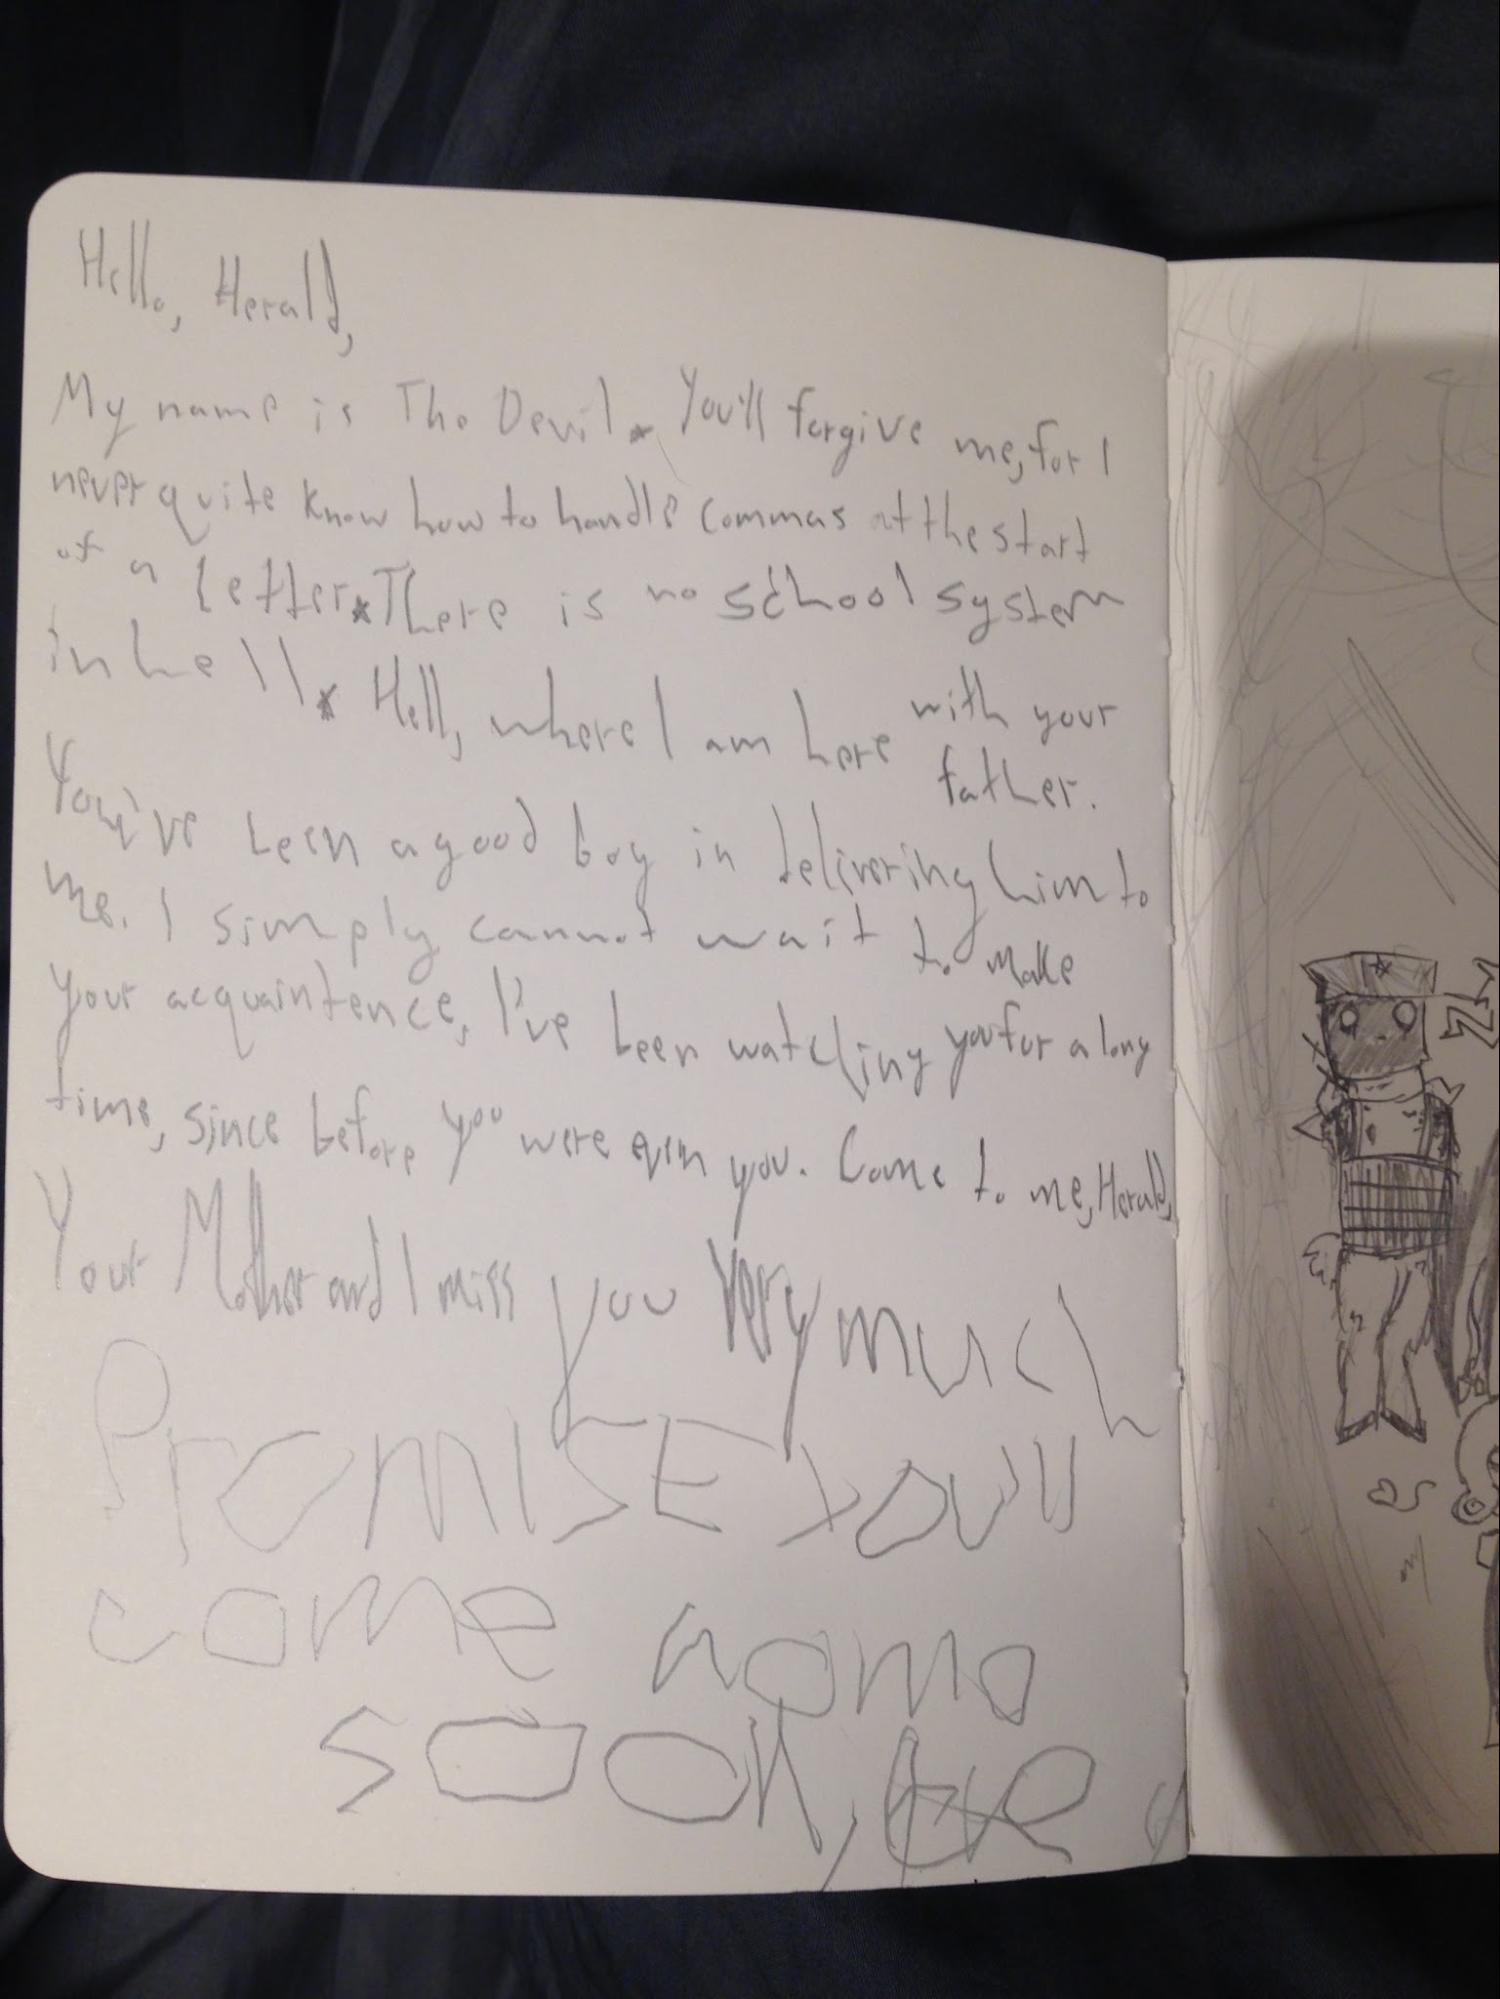 Hello, Herald,
My name is The Devil. You'll forgive me, for I
never quite know how to handle commas at the start
of a letter. There is no school system
in hell. Hell, where I am here with your
father.
You've been a good boy in delivering him to
me. I simply cannot wait to make
your acquaintence, I've been watching you for a long
time, since before you were even you. Come to me, Herald,
Your Mother and I miss you very much
PromISE You'll
come home
soon,